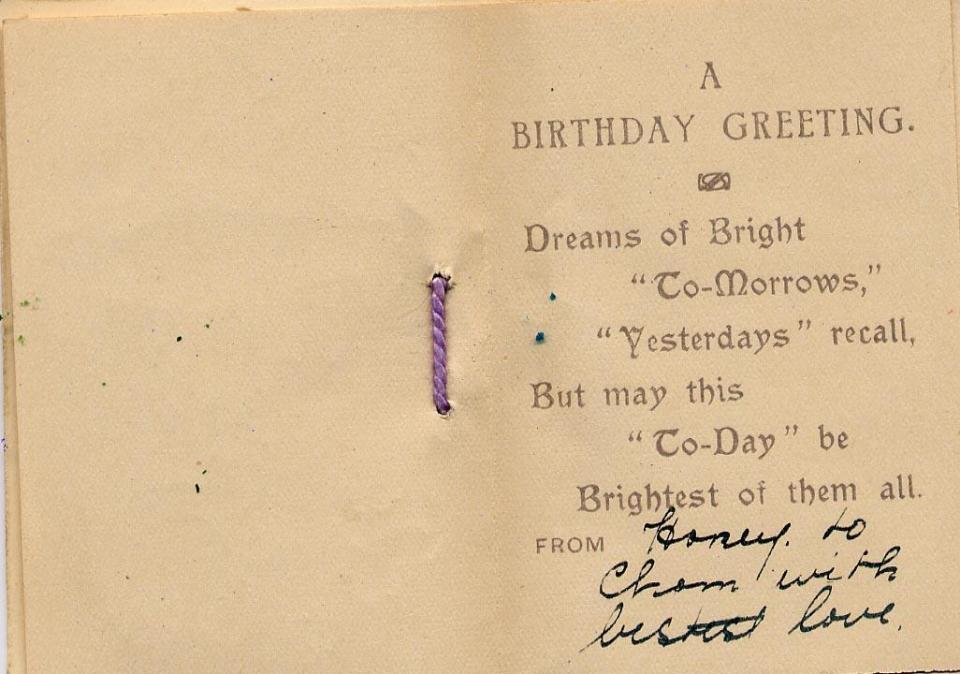 A
BIRTHDAY GREETING.
Dreams of Bright
"To-Morrows,"
"Yesterdays" recall,
But may this
"To-Day" be
Brightest of them all.
FROM Honey. to
Chom with
bestest love.